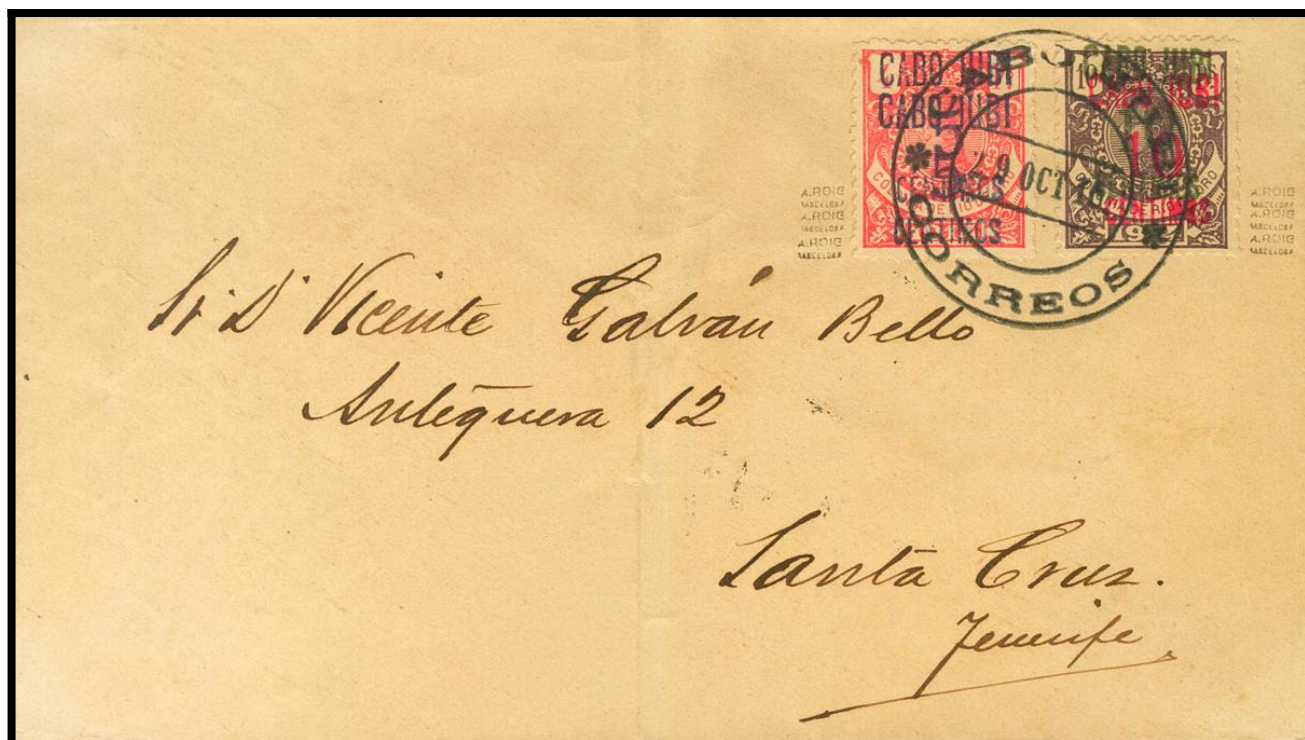 CABO JUBI
CABO JUBI
5
CENTIMOS
CENTIMOS
CABO JUBI
10
1914
CABO JUBI
29 OCT 16
CORREOS
A.ROIG
BARCELONA
A.ROIG
BARCELONA
A.ROIG
BARCELONA
A.ROIG
BARCELONA
A.ROIG
BARCELONA
A.ROIG
BARCELONA
Sr. D. Vicente Galván Bello
Antequera 12
Santa Cruz.
Tenerife